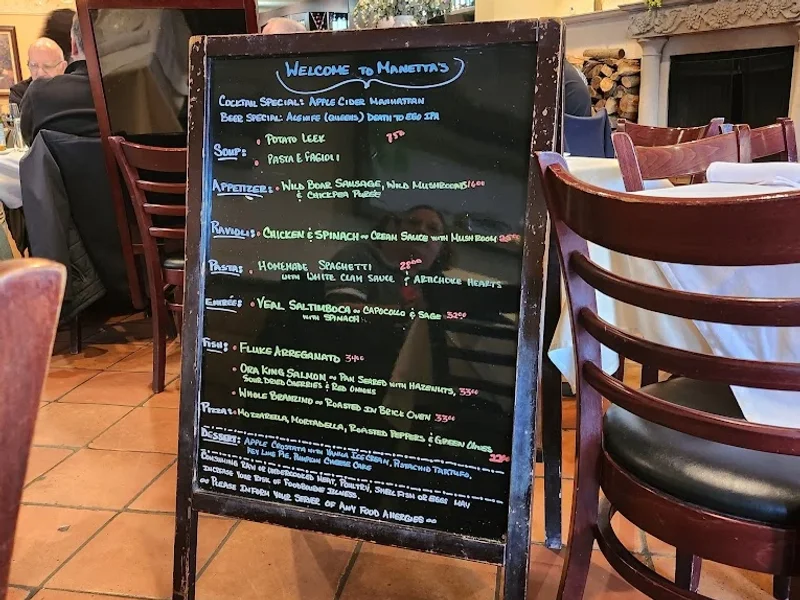 Welcome to Manetta's
Cocktail Special: Apple Cider Manhattan
Beer Special: Alewife (Queens) Death to Ego IPA
Soup: • Potato Leek 7.50
• Pasta e Fagioli
Appetizer: • Wild Boar Sausage, Wild Mushrooms 16.00
& Chickpea Purée
Ravioli: • Chicken & Spinach ~ Cream Sauce with Mushroom 25.00
Pasta: • Homemade Spaghetti 25.00
with White Clam Sauce & Artichoke Hearts
Entrée: • Veal Saltimboca ~ Capocollo & Sage 32.00
with Spinach
Fish: • Fluke Arreganato 34.00
• Ora King Salmon ~ Pan Seared with Hazelnuts, 33.00
Sour Dried Cherries & Red Onions
• Whole Branzino ~ Roasted in Brick Oven 33.00
Pizza: • Mozzarella, Mortadella, Roasted Peppers & Green Olives
Dessert: Apple Crostata with Vanilla Ice Cream, Pistachio Tartufo,
Key Lime Pie, Pumpkin Cheese Cake
Consuming Raw or Undercooked Meat, Poultry, Shell Fish or Eggs May
Increase Your Risk of Foodbourne Illness.
~ Please Inform Your Server of Any Food Allergies ~